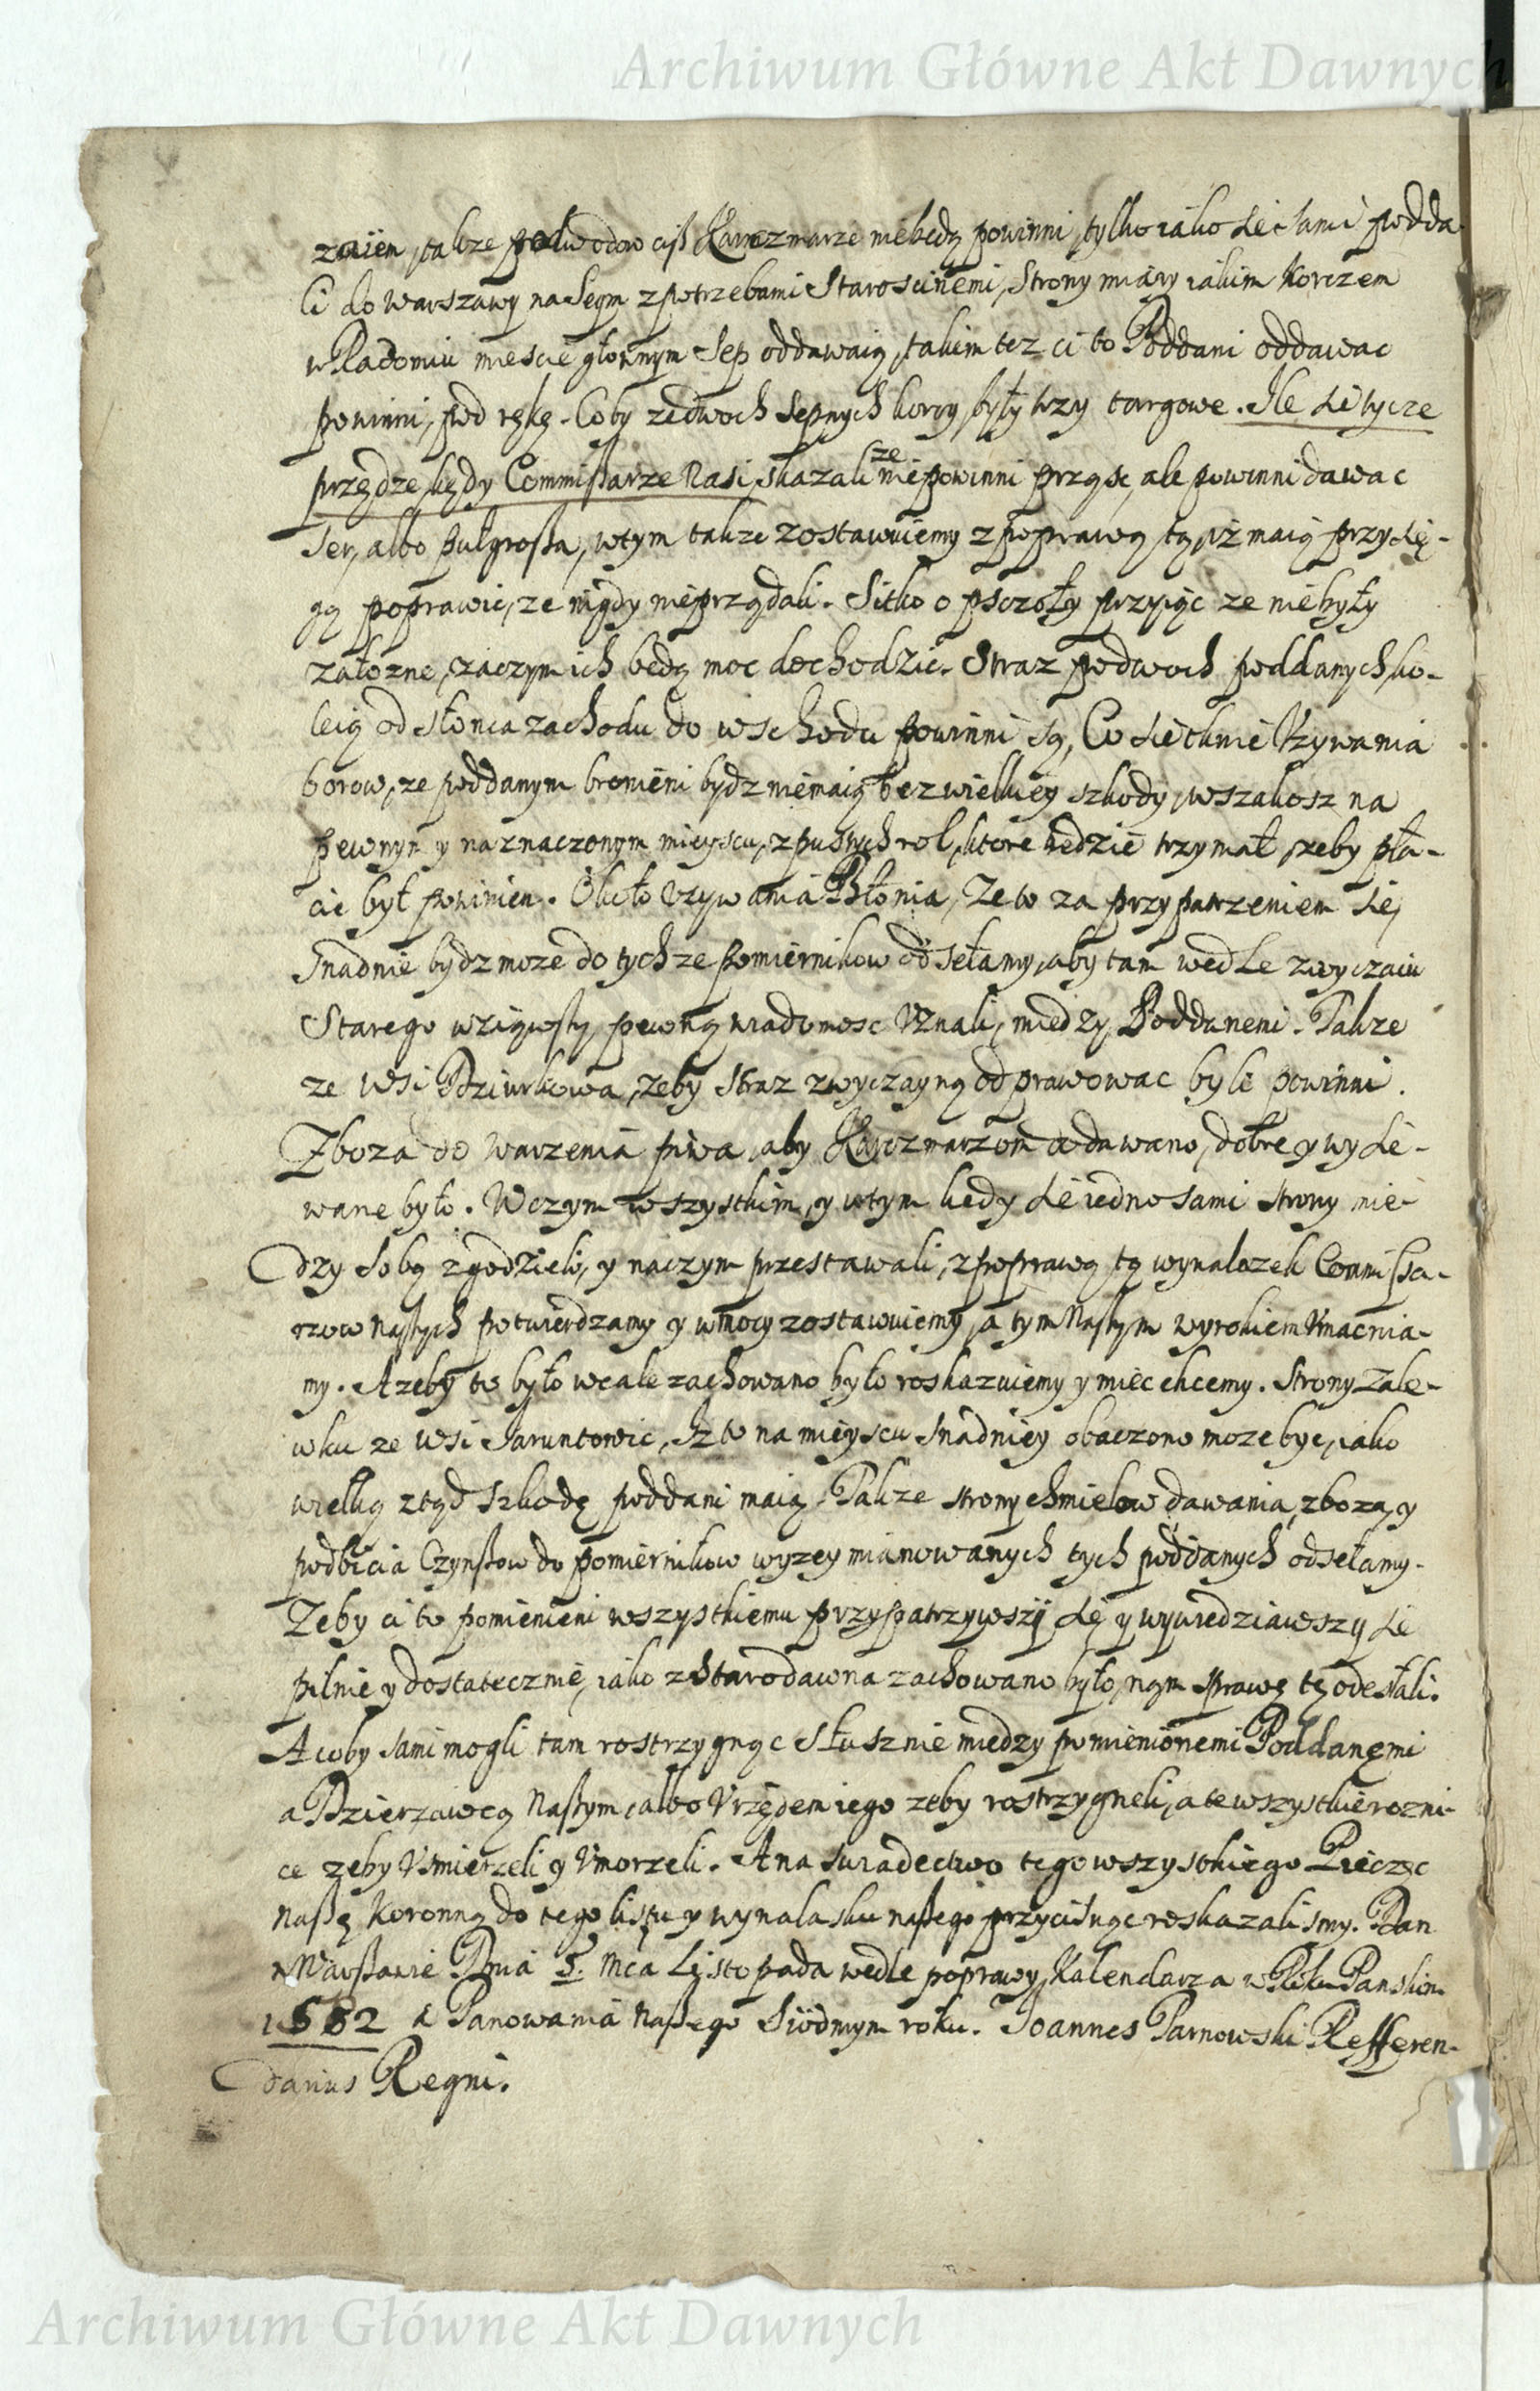 Archiwum Główne Akt Dawnych
także podwodow ciß Karczmarze niebędą powinni, tylko iako sie sami podda
ci do Warszawy na Seym z potrzebami Starosciniemi, Strony miary iakim Korczem
w Radomiu miescie głownym Sep oddawaią, takim tez ci to Poddani oddawac
powinni, pod ręką. Coby zedwoch sepnych korcy były trzy targowe. Ile sie tycze
przędze, kędy Commißarze Nasi skazali ze niepowinni prząsc, ale powinni dawac
ser, albo pułgroßa, wtym takze zostawuiemy z poprawą tą, iż maią przysię-
gą poprawic, ze nigdy nieprządali. Sitko o psczoły przyiąc ze niebyły
załozne, zaczym ich będą moc dochodzic. Straz podwoch poddanych ko-
leią od słonca zachodu do wschodu powinni są, Co sie tknie Vzywania
borow, ze poddanym bronieni bydz niemaią bez wielkiey szkody, wszakosz na
pewnym y naznaczonym mieyscu, z pustych rol, ktore będzie trzymał, zeby pła-
cic był powinien. Około Vzywania Błonia, Ze to za przypatrzeniem sie,
Snadnie bydz moze do tychze pomiernikow odsełamy, aby tam wedle zwyczaiu
Starego wziąwsty, pewną wiadomosc Vznali, miedzy Poddanemi. Takze
ze wsi Dziurkowa, zeby Straz zwyczayną odprawowac byle powinni.
Zboza do warzenia piwa, aby Karczmarzom dodawano, dobre y wysie-
wane było. Wczym wszystkim, y wtym kiedy sie iedno sami strony mie-
dzy sobą zgodzieli, y naczym przestawali, z poprawą tą wynalazek Commißa-
rzow Naßych potwierdzamy y wmocy zostawuiemy, a tym Naßym wyrokiem Vmacnia-
my. Azeby to było wcale zachowano było roskazuiemy y miec chcemy. Strony zale-
wku ze wsi Jaruntowic, Iz to na mieyscu snadniey obaczono moze byc, iako
wielką ztąd szkodę poddani maią. Takze strony chmielow dawania, zboza, y
podbicia Czynßow do pomiernikow wyzey mianowanych tych poddanych odsełamy.
Zeby ci to pomienieni wszystkiemu przypatrzywszy się y wywiedziawszy sie
pilnie y dostatecznie, iako zstarodawna zachowano było, nąm sprawę tę odesłali.
A coby sami mogli tam rostrzygnąc słusznie miedzy pomienionemi Poddanęmi
a Dzierzawcą Naßym, albo Vrzędem iego zeby rostrzygneli, a te wszystkie rozni-
ce zeby Vsmierzeli y Vmorzeli. A na swiadectwo tego wszystkiego Pieczęc
Naßę Koronną do tego listu y wynalasku naßego przycisnąc roskazalismy. Dan
w Warßawie Dnia 5. Mca Listopada wedle poprawy Kalendarza w Roku Panskim
1582 A Panowania Naßego Siodmym roku. Joannes Tarnowski Refferen-
darius Regni.
Archiwum Główne Akt Dawnych